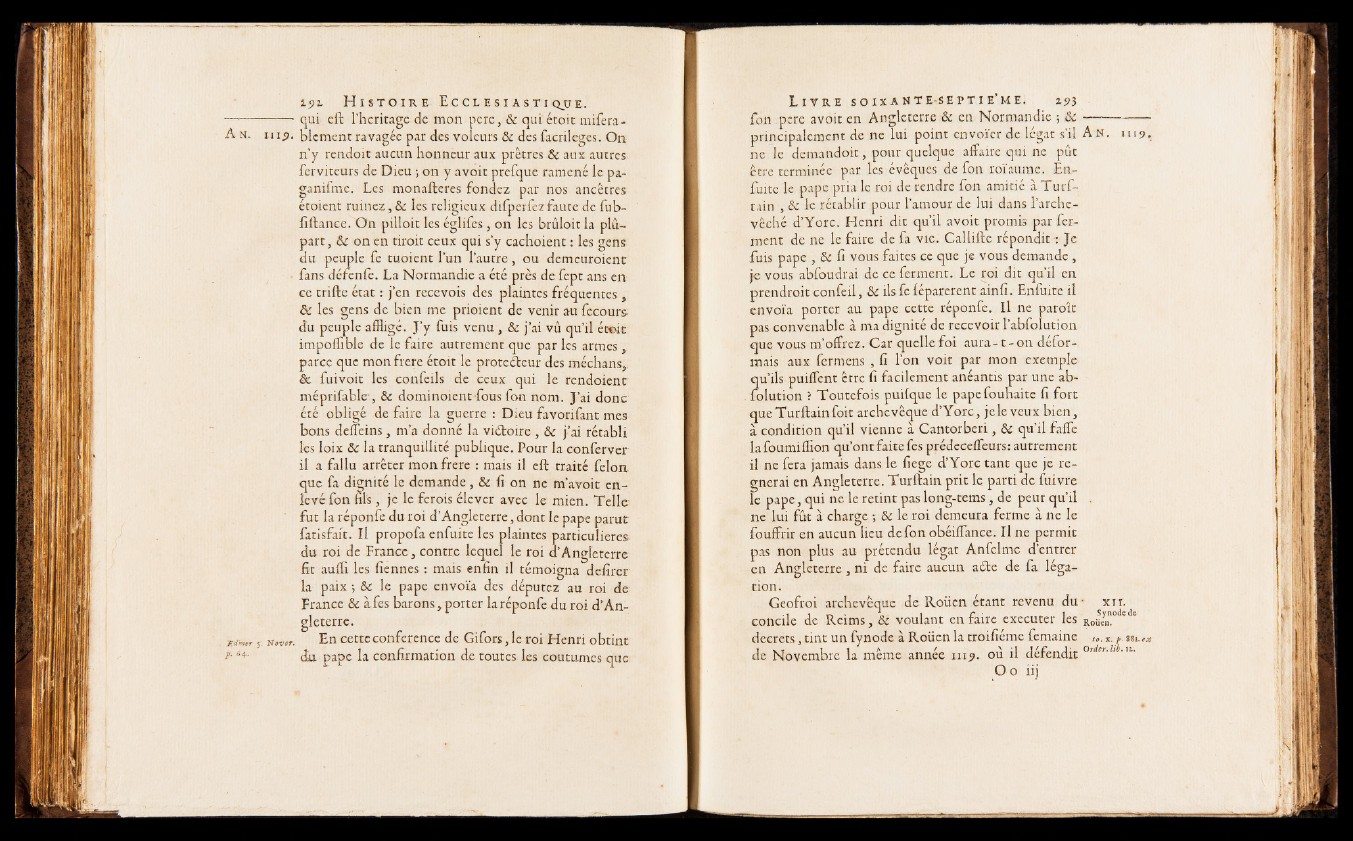 292 HISTOIRE ECCLESIASTIQUE.
qui eſt l'heritage de mon pere, & qui étoit miſera-
AN. 1119. blement ravagée par des voleurs & des ſacrileges. On
n'y rendoit aucun honneur aux prêtres & aux autres
ſerviteurs de Dieu ; on y avoit preſque ramené le pa-
ganiſme. Les monaſteres fondez par nos ancêtres
étoient ruinez, & les religieux diſperſez faute de ſub-
ſiſtance. On pilloit les égliſes, on les brûloit la plû-
part, & on en tiroit ceux qui s'y cachoient : les gens
du peuple ſe tuoient l'un l'autre, ou demeuroient
ſans défenſe. La Normandie a été près de ſept ans en
ce triſte état : j'en recevois des plaintes fréquentes,
& les gens de bien me prioient de venir au ſecours
du peuple affligé. J'y ſuis venu, & j'ai vû qu'il étoit
impoſſible de le faire autrement que par les armes,
parce que mon frere étoit le protecteur des méchans,
& ſuivoit les conſeils de ceux qui le rendoient
mépriſable, & dominoient ſous ſon nom. J'ai donc
été obligé de faire la guerre : Dieu favoriſant mes
bons deſſeins, m'a donné la victoire, & j'ai rétabli
les loix & la tranquillité publique. Pour la conſerver
il a fallu arrêter mon frere : mais il eſt traité ſelon
que ſa dignité le demande, & ſi on ne m'avoit en-
levé ſon fils, je le ferois élever avec le mien. Telle
fut la réponſe du roi d'Angleterre, dont le pape parut
ſatisfait. Il propoſa enſuite les plaintes particulieres
du roi de France, contre lequel le roi d'Angleterre
fit auſſi les ſiennes : mais enfin il témoigna deſirer
la paix ; & le pape envoïa des députez au roi de
France & à ſes barons, porter la réponſe du roi d'An-
gleterre.
Edmer 5. Novor. En cette conference de Giſors, le roi Henri obtint
p. 64. du pape la confirmation de toutes les coutumes que
LIVRE SOIXANTE-SEPTIE'ME. 293
ſon pere avoit en Angleterre & en Normandie ; &
principalement de ne lui point envoïer de légat s'il AN. 1119.
ne le demandoit, pour quelque affaire qui ne pût
être terminée par les évêques de ſon roïaume. En-
ſuite le pape pria le roi de rendre ſon amitié à Turſ-
tain, & le rétablir pour l'amour de lui dans l'arche-
vêché d'Yorc. Henri dit qu'il avoit promis par ſer-
ment de ne le faire de ſa vie. Calliſte répondit : Je
ſuis pape, & ſi vous faites ce que je vous demande,
je vous abſoudrai de ce ſerment. Le roi dit qu'il en
prendroit conſeil, & ils ſe ſéparerent ainſi. Enſuite il
envoïa porter au pape cette réponſe. Il ne paroît
pas convenable à ma dignité de recevoir l'abſolution
que vous m'offrez. Car quelle foi aura-t-on déſor-
mais aux ſermens, ſi l'on voit par mon exemple
qu'ils puiſſent être ſi facilement anéantis par une ab-
ſolution ? Toutefois puiſque le pape ſouhaite ſi fort
que Turſtain ſoit archevêque d'Yorc, je le veux bien,
à condition qu'il vienne à Cantorberi, & qu'il faſſe
la ſoumiſſion qu'ont faite ſes prédeceſſeurs: autrement
il ne ſera jamais dans le ſiege d'Yorc tant que je re-
gnerai en Angleterre. Turſtain prit le parti de ſuivre
le pape, qui ne le retint pas long-tems, de peur qu'il
ne lui fût à charge ; & le roi demeura ferme à ne le
ſouffrir en aucun lieu de ſon obéiſſance. Il ne permit
pas non plus au prétendu légat Anſelme d'entrer
en Angleterre, ni de faire aucun acte de ſa léga-
tion.
Geofroi archevêque de Roüen étant revenu du XII.
concile de Reims, & voulant en faire executer les Synode de Roüen.
decrets, tint un ſynode à Roüen la troiſiéme ſemaine to. x. p. 881. ex
de Novembre la même année 1119. où il défendit Order. lib. 12.
O o iij